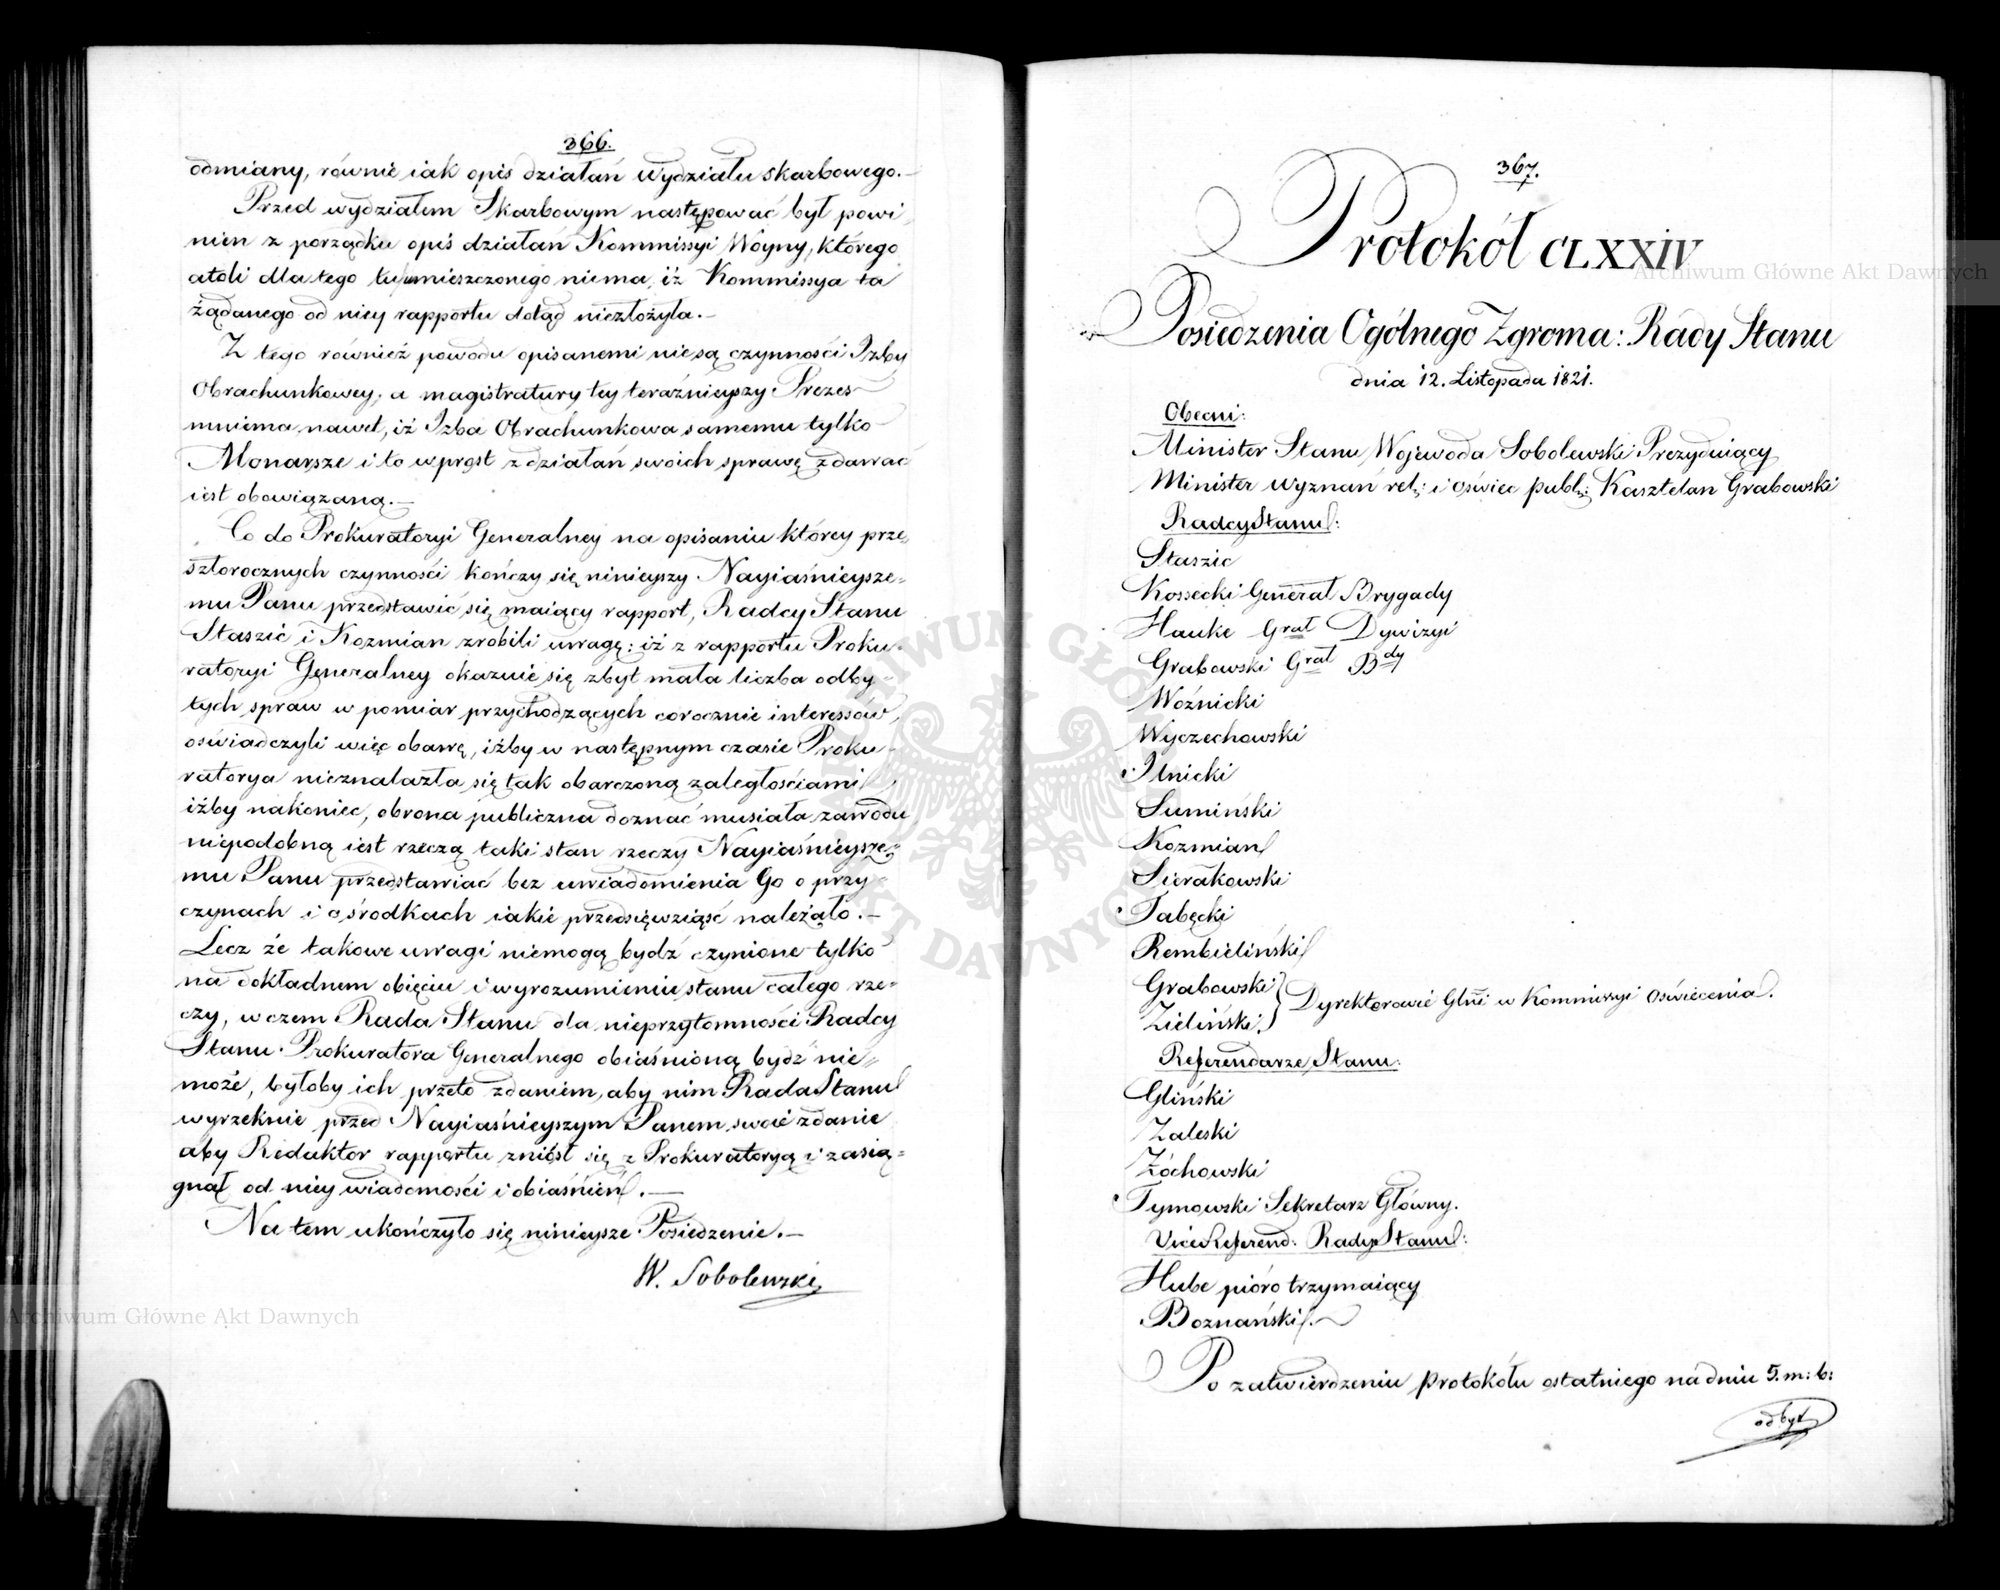 366.
odmiany, równie iak opis działań Wydziału skarbowego.
Przed wydziałem Skarbowym następować był powi-
nien z porządku opis działań Kommissyi Woyny, którego
atoli dla tego tu umieszczonego niema, iż Kommissya ta
żądanego od niey rapportu dotąd niezłożyła.
Z tego również powodu opisanemi nie są czynności Izby
Obrachunkowey, a magistratury tey teraźnieyszy Prezes
mniema nawet, iż Izba Obrachunkowa samemu tylko
Monarsze i to wprost z działań swoich sprawę zdawać
iest obowiązaną.
Co do Prokuratoryi Generalney na opisaniu którey prze-
szłorocznych czynności kończy się ninieyszy Nayiaśnieysze-
mu Panu przedstawić się maiący rapport, Radcy Stanu
Staszic i Kozmian zrobili uwagę: iż z rapportu Proku-
ratoryi Generalney okazuie się zbyt mała liczba odby-
tych spraw w pomiar przychodzących corocznie interessów,
oświadczyli więc obawę, iżby w następnym czasie Proku-
ratorya nieznalazła się tak obarczoną zaległościami
iżby nakoniec, obrona publiczna doznać musiała zawodu
niepodobną iest rzeczą taki stan rzeczy Nayiaśnieysze-
mu Panu przedstawiać bez uwiadomienia Go o przy-
czynach i o środkach iakie przedsięwziąść należało.
Lecz że takowe uwagi niemogą bydź czynione tylko
na dokładnem obięciu i wyrozumieniu stanu całego rze-
czy, w czem Rada Stanu dla nieprzytomności Radcy
Stanu Prokuratora Generalnego obiaśnioną bydź nie-
może, byłoby ich przeto zdaniem, aby nim Rada Stanu
wyrzeknie przed Nayiaśnieyszym Panem swoie zdanie
aby Redaktor rapportu zniósł się z Prokuratoryą i zasią-
gnął od niey wiadomości i obiaśnień.
Na tem ukończyło się ninieysze Posiedzenie.
W. Sobolewski
367.
Protokół CLXXIV
Posiedzenia Ogólnego Zgroma: Rady Stanu
dnia 12. Listopada 1821.
Obecni:
Minister Stanu Wojewoda Sobolewski Prezyduiący
Minister Wyznań rel: i Oświec publ: Kasztelan Grabowski
Radcy Stanu:
Staszic
Kossecki Generał Brygady
Hauke Grał Dywizyi
Grabowski Grał Bdy
Woźnicki
Wyczechowski
Ilnicki
Sumiński
Kozmian
Sierakowski
Tabęcki
Rembieliński
Grabowski
Zieliński } Dyrektorowie Glni w Kommissyi Oświecenia.
Referendarze Stanu:
Gliński
Zaleski
Żóchowski
Tymowski Sekretarz Główny.
Vice Referend: Rady Stanu:
Hube pióro trzymaiący
Boznański.
Po zatwierdzeniu Protokółu ostatniego na dniu 5. m: b:
odbyt
Archiwum Główne Akt Dawnych
Archiwum Główne Akt Dawnych
ARCHIWUM GŁÓWNE AKT DAWNYCH